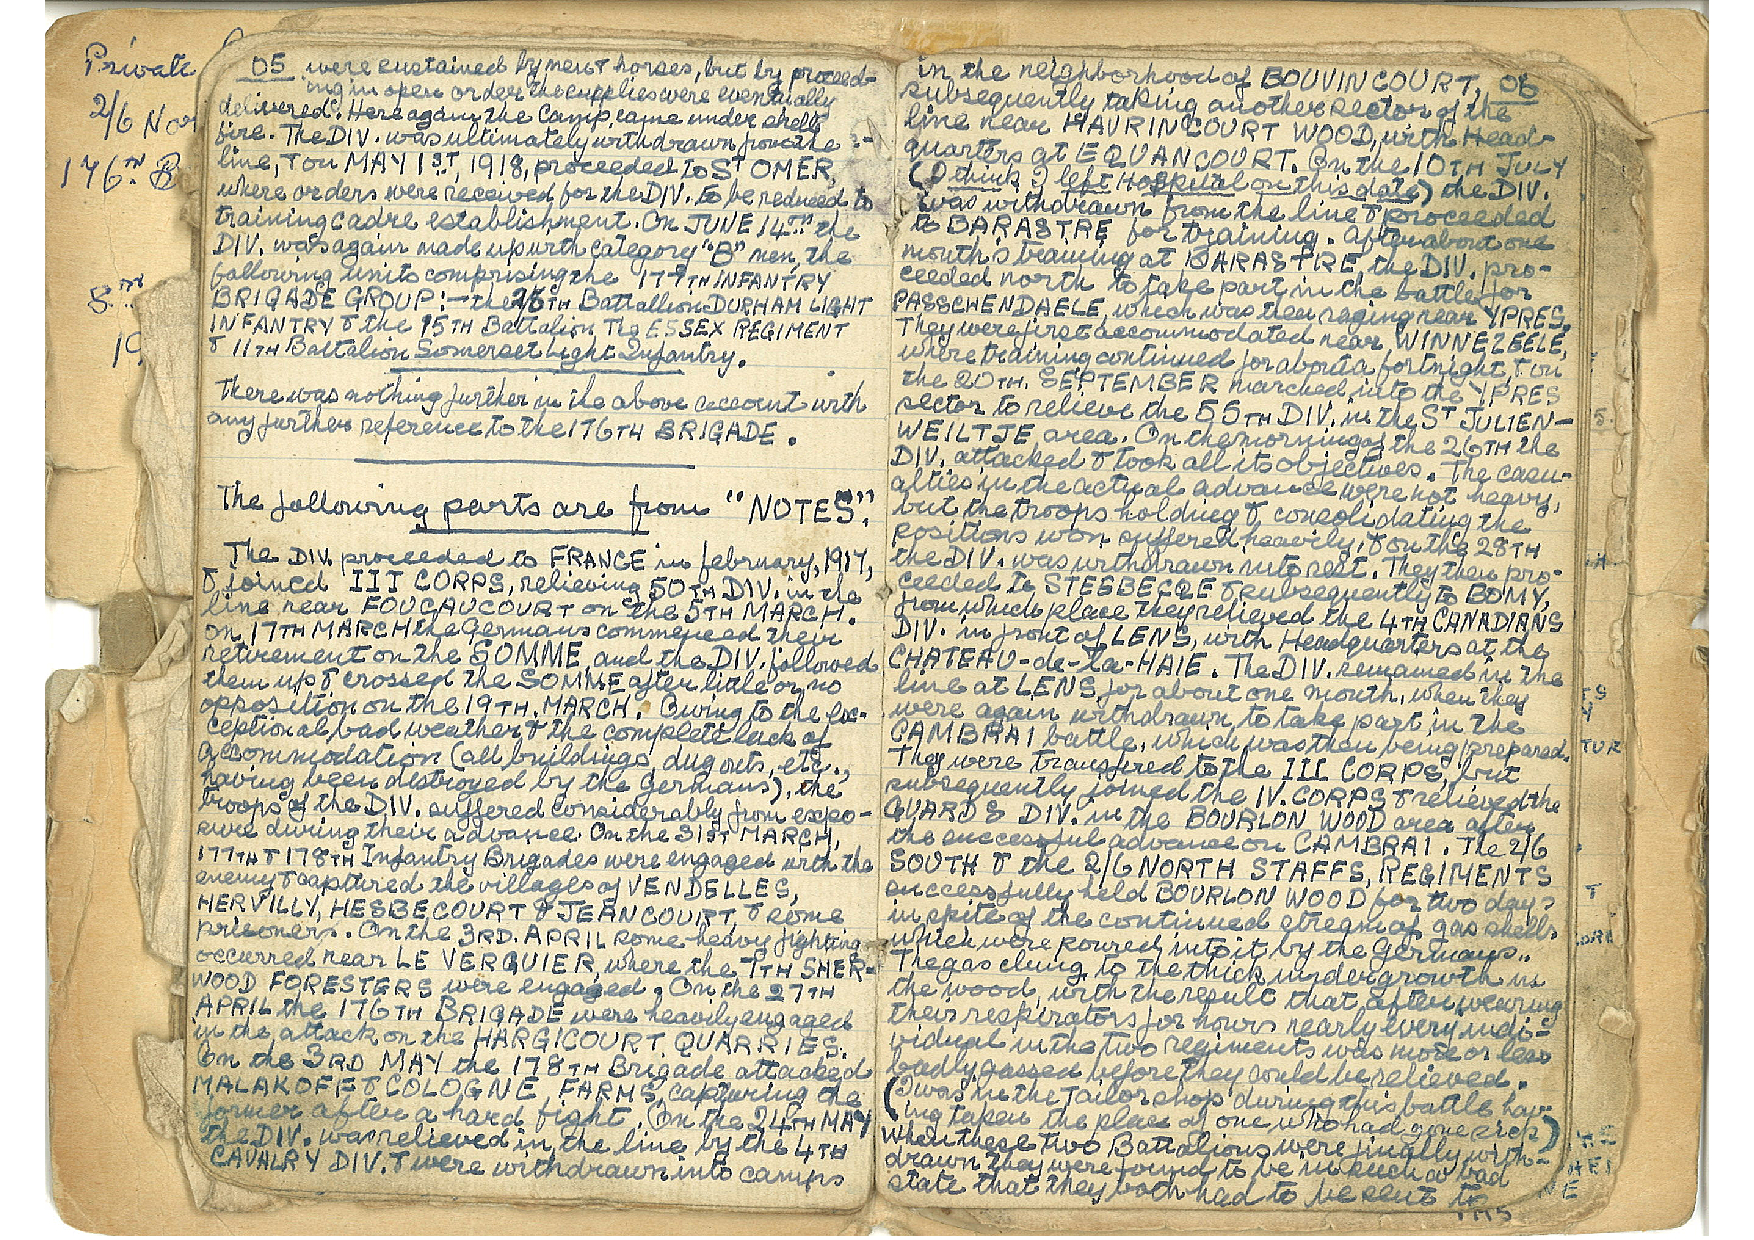 Private
2/6 Nor
176TH B
8TH
19
05 were sustained by men & horses, but by proceed-
ing in open order the supplies were eventually
delivered. Here again the Camp came under shell
fire. The DIV. was ultimately withdrawn from the
line, & on MAY 1ST, 1918, proceeded to ST OMER,
where orders were received for the DIV. to be reduced to
training cadre establishment. On JUNE 14TH the
DIV. was again made up with category "B" men, the
following units comprising the 177TH INFANTRY
BRIGADE GROUP:— the 26TH Battallion DURHAM LIGHT
INFANTRY & the 15TH Battalion The ESSEX REGIMENT
& 11TH Battalion Somerset Light Infantry.
There was nothing further in the above account with
any further reference to the 176TH BRIGADE.
The following parts are from "NOTES".
The DIV. proceeded to FRANCE in february, 1917,
& joined III CORPS, relieving 50TH DIV. in the
line near FOUCAUCOURT on the 5TH MARCH.
on 17TH MARCH the Germans commenced their
retirement on the SOMME and the DIV. followed
them up & crossed the SOMME after little or no
opposition on the 19TH. MARCH. Owing to the ex-
ceptional bad weather & the complete lack of
accommodation (all buildings, dug outs, etc.,
having been destroyed by the Germans), the
troops of the DIV. suffered considerably from expo-
sure during their advance. On the 31ST MARCH,
177TH & 178TH Infantry Brigades were engaged with the
enemy & captured the villages of VENDELLES,
HERVILLY, HESBECOURT & JEANCOURT, & some
prisoners. On the 3RD. APRIL some heavy fighting
occurred near LE VERQUIER, where the 7TH SHER-
WOOD FORESTERS were engaged. On the 27TH
APRIL the 176TH BRIGADE were heavily engaged
in the attack on the HARGICOURT QUARRIES.
On the 3RD MAY the 178TH Brigade attacked
MALAKOFF & COLOGNE FARMS, capturing the
former after a hard fight. On the 24TH MAY
the DIV. was relieved in the line by the 4TH
CAVALRY DIV. & were withdrawn into camps
in the neighborhood of BOUVINCOURT, 06
subsequently taking another sector of the
line near HAVRINCOURT WOOD, with Head-
quarters at EQUANCOURT. On the 10TH JULY
(I think I left Hospital on this date) the DIV.
was withdrawn from the line & proceeded
to BARASTRE for training. After about one
month's training at BARASTRE, the DIV. pro-
ceeded north to take part in the battle for
PASSCHENDAELE, which was then raging near YPRES.
They were first accommodated near WINNEZEELE,
where training continued for about a fortnight, & on
the 20TH. SEPTEMBER marched into the YPRES
sector to relieve the 55TH DIV. in the ST JULIEN—
WEILTJE area. On the morning of the 26TH the
DIV. attacked & took all its objectives. The casu-
alties in the actual advance were not heavy,
but the troops holding & consolidating the
positions won suffered heavily, & on the 28TH
the DIV. was withdrawn into rest. They then pro-
ceeded to STEEBECQE & subsequently to BOMY,
from which place they relieved the 4TH CANADIANS
DIV. in front of LENS, with Headquarters at the
CHATEAU-de-la-HAIE. The DIV. remained in the
line at LENS for about one month, when they
were again withdrawn to take part in the
CAMBRAI battle, which was then being prepared.
They were transfered to the III CORPS, but
subsequently joined the IV. CORPS & relieved the
GUARDS DIV. in the BOURLON WOOD area after
the successful advance on CAMBRAI. The 2/6
SOUTH & the 2/6 NORTH STAFFS, REGIMENTS
successfully held BOURLON WOOD for two days
in spite of the continued stream of gas shells
which were poured into it by the Germans.
The gas clung to the thick undergrowth in
the wood, with the result that after wearing
their respirators for hours nearly every indi-
vidual in the two regiments was more or less
badly gassed before they could be relieved.
(I was in the Tailor shop during this battle hav-
ing taken the place of one who had gone sick)
When these two Battalions were finally with-
drawn they were found to be in such a bad
state that they both had to be sent to
TUR
T